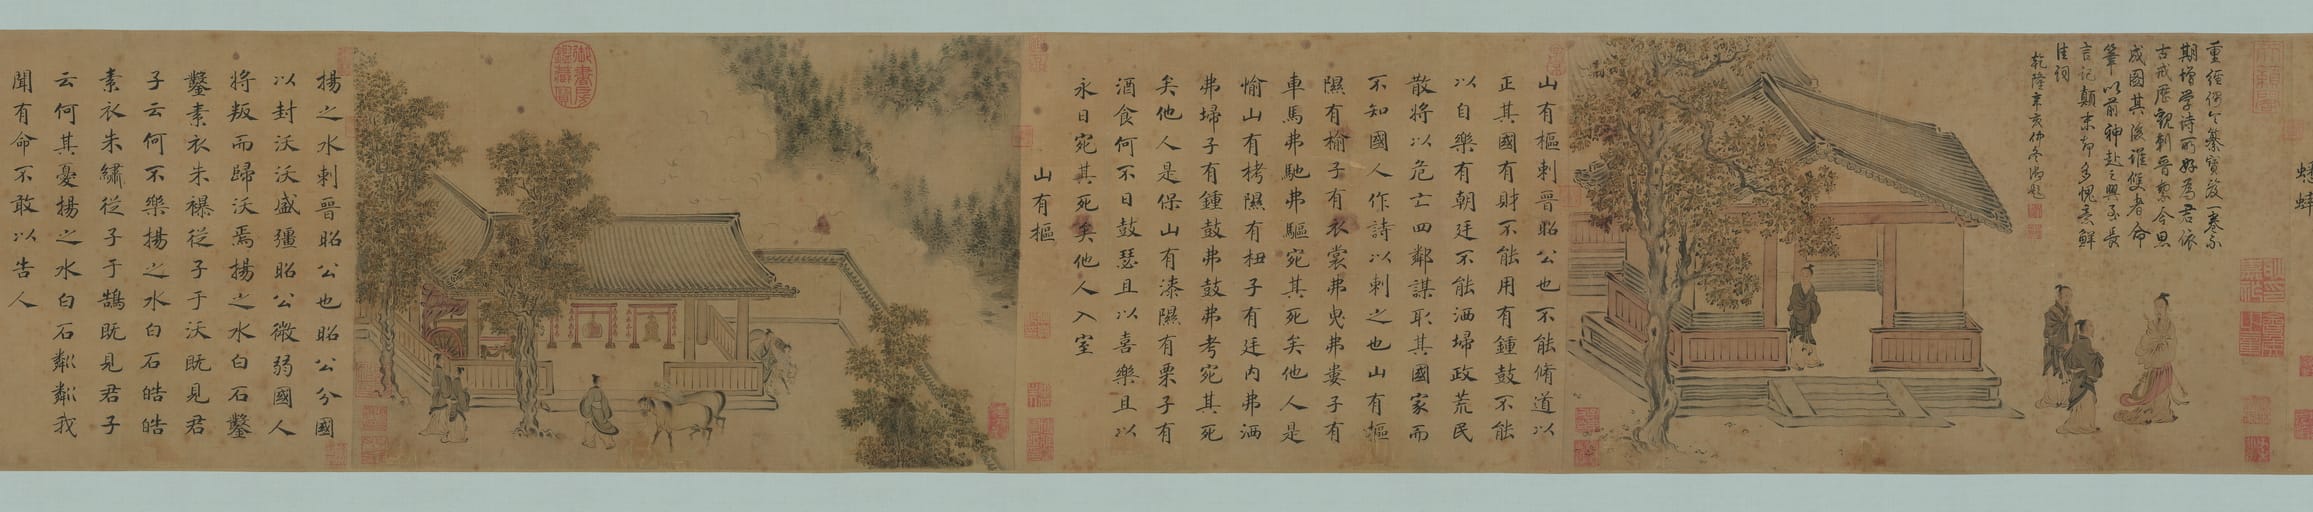 蟋蟀
古戒歷觀刺晉
成國其後誰俊者命
筆以前神赴之興至長
言記顛末却多愧彥鮮
佳詞
乾隆辛亥仲冬御題
山有樞刺晉昭公也不能脩道以
正其國有財不能用有鍾鼓不能
以自樂有朝廷不能洒埽政荒民
散將以危亡四鄰謀取其國家而
不知國人作詩以刺之也山有樞
隰有榆子有衣裳弗曳弗婁子有
車馬弗馳弗驅宛其死矣他人是
愉山有栲隰有杻子有廷內弗洒
弗埽子有鍾鼓弗鼓弗考宛其死
矣他人是保山有漆隰有栗子有
酒食何不日鼓瑟且以喜樂且以
永日宛其死矣他人入室
山有樞
御書房鑑藏寶
揚之水刺晉昭公也昭公分國
以封沃沃盛彊昭公微弱國人
將叛而歸沃焉揚之水白石鑿
鑿素衣朱襮從子于沃既見君
子云何不樂揚之水白石皓皓
素衣朱繡從子于鵠既見君子
云何其憂揚之水白石粼粼我
聞有命不敢以告人